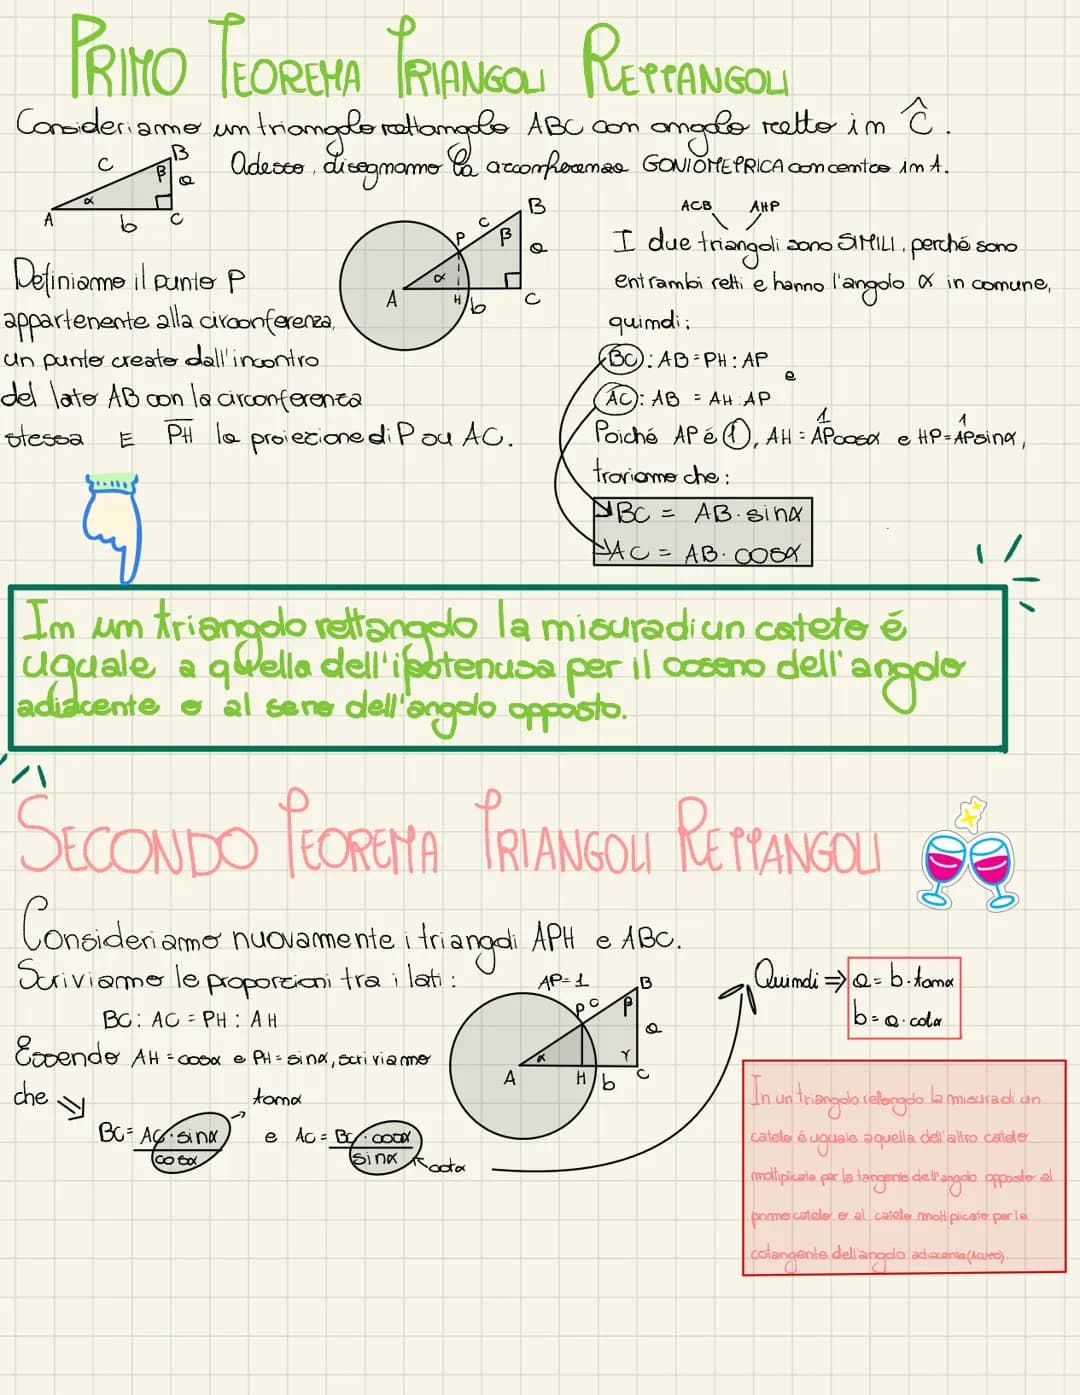 PRIMO TEOREMA TRIANGOLI RETTANGOLI
Consideriamo un triangolo rettangolo ABC con angolo retto in Ĉ.
Adesso, disegnamo la circonferenza GONIOMETRICA con centro in A.
c B β a α A b C
B c P β a α A H b C
Definiamo il punto P
appartenente alla circonferenza,
un punto creato dall'incontro
del lato AB con la circonferenza
stessa E PH la proiezione di P su AC.
ACB AHP
I due triangoli sono SIMILI, perché sono
entrambi retti e hanno l'angolo α in comune,
quindi:
BC : AB = PH : AP
e
AC : AB = AH : AP
1 1
Poiché AP é 1, AH = APcosα e HP = APsinα,
troviamo che:
BC = AB · sinα
AC = AB · cosα
In un triangolo rettangolo la misura di un cateto é
uguale a quella dell'ipotenusa per il coseno dell'angolo
adiacente o al seno dell'angolo opposto.
SECONDO TEOREMA TRIANGOLI RETTANGOLI
Consideriamo nuovamente i triangoli APH e ABC.
Scriviamo le proporzioni tra i lati:
BC : AC = PH : AH
Essendo AH = cosα e PH = sinα, scriviamo
che
tanα
BC = AC · sinα e AC = BC · cosα
cosα sinα cotα
AP = 1
B P c β a α γ A H b C
Quindi ⇒ a = b · tanα
b = a · cotα
In un triangolo rettangolo la misura di un
cateto é uguale a quella dell'altro cateto
moltiplicata per la tangente dell'angolo opposto al
primo cateto o al cateto moltiplicato per la
cotangente dell'angolo adiacente (acuto).